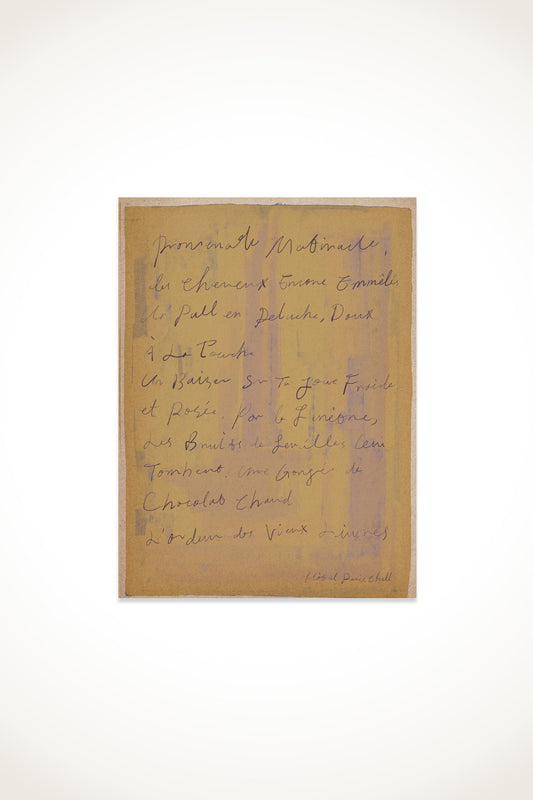 Promenade Matinale,
les cheveux Encore Emmêlés
Un Pull en Peluche, Doux
À La Touche
Un Baiser Sur Ta Joue Froide
et Rosée. Par la Fenêtre,
Les Bruits de Feuilles qui
Tombent. Une Gorgée de
Chocolat Chaud
L'odeur des Vieux Livres